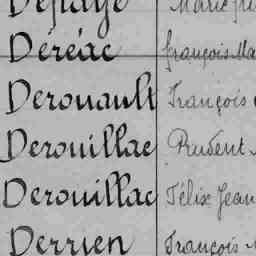 Depage Marie
Déréac François Ma
Derouault François
Derouillac Prudent
Derouillac Félix Jean
Derrien François